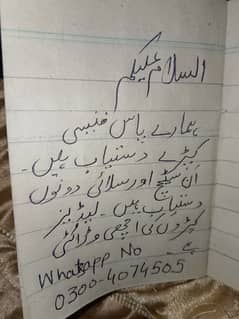 السلام علیکم
ہمارے پاس فینسی
کپڑے دستیاب ہیں۔
ان سٹیچ اور سلائی دونوں
دستیاب ہیں۔ لیڈیز
کپڑوں کی اچھی ورائٹی
ہے۔
Whatapp No
0300-4074505